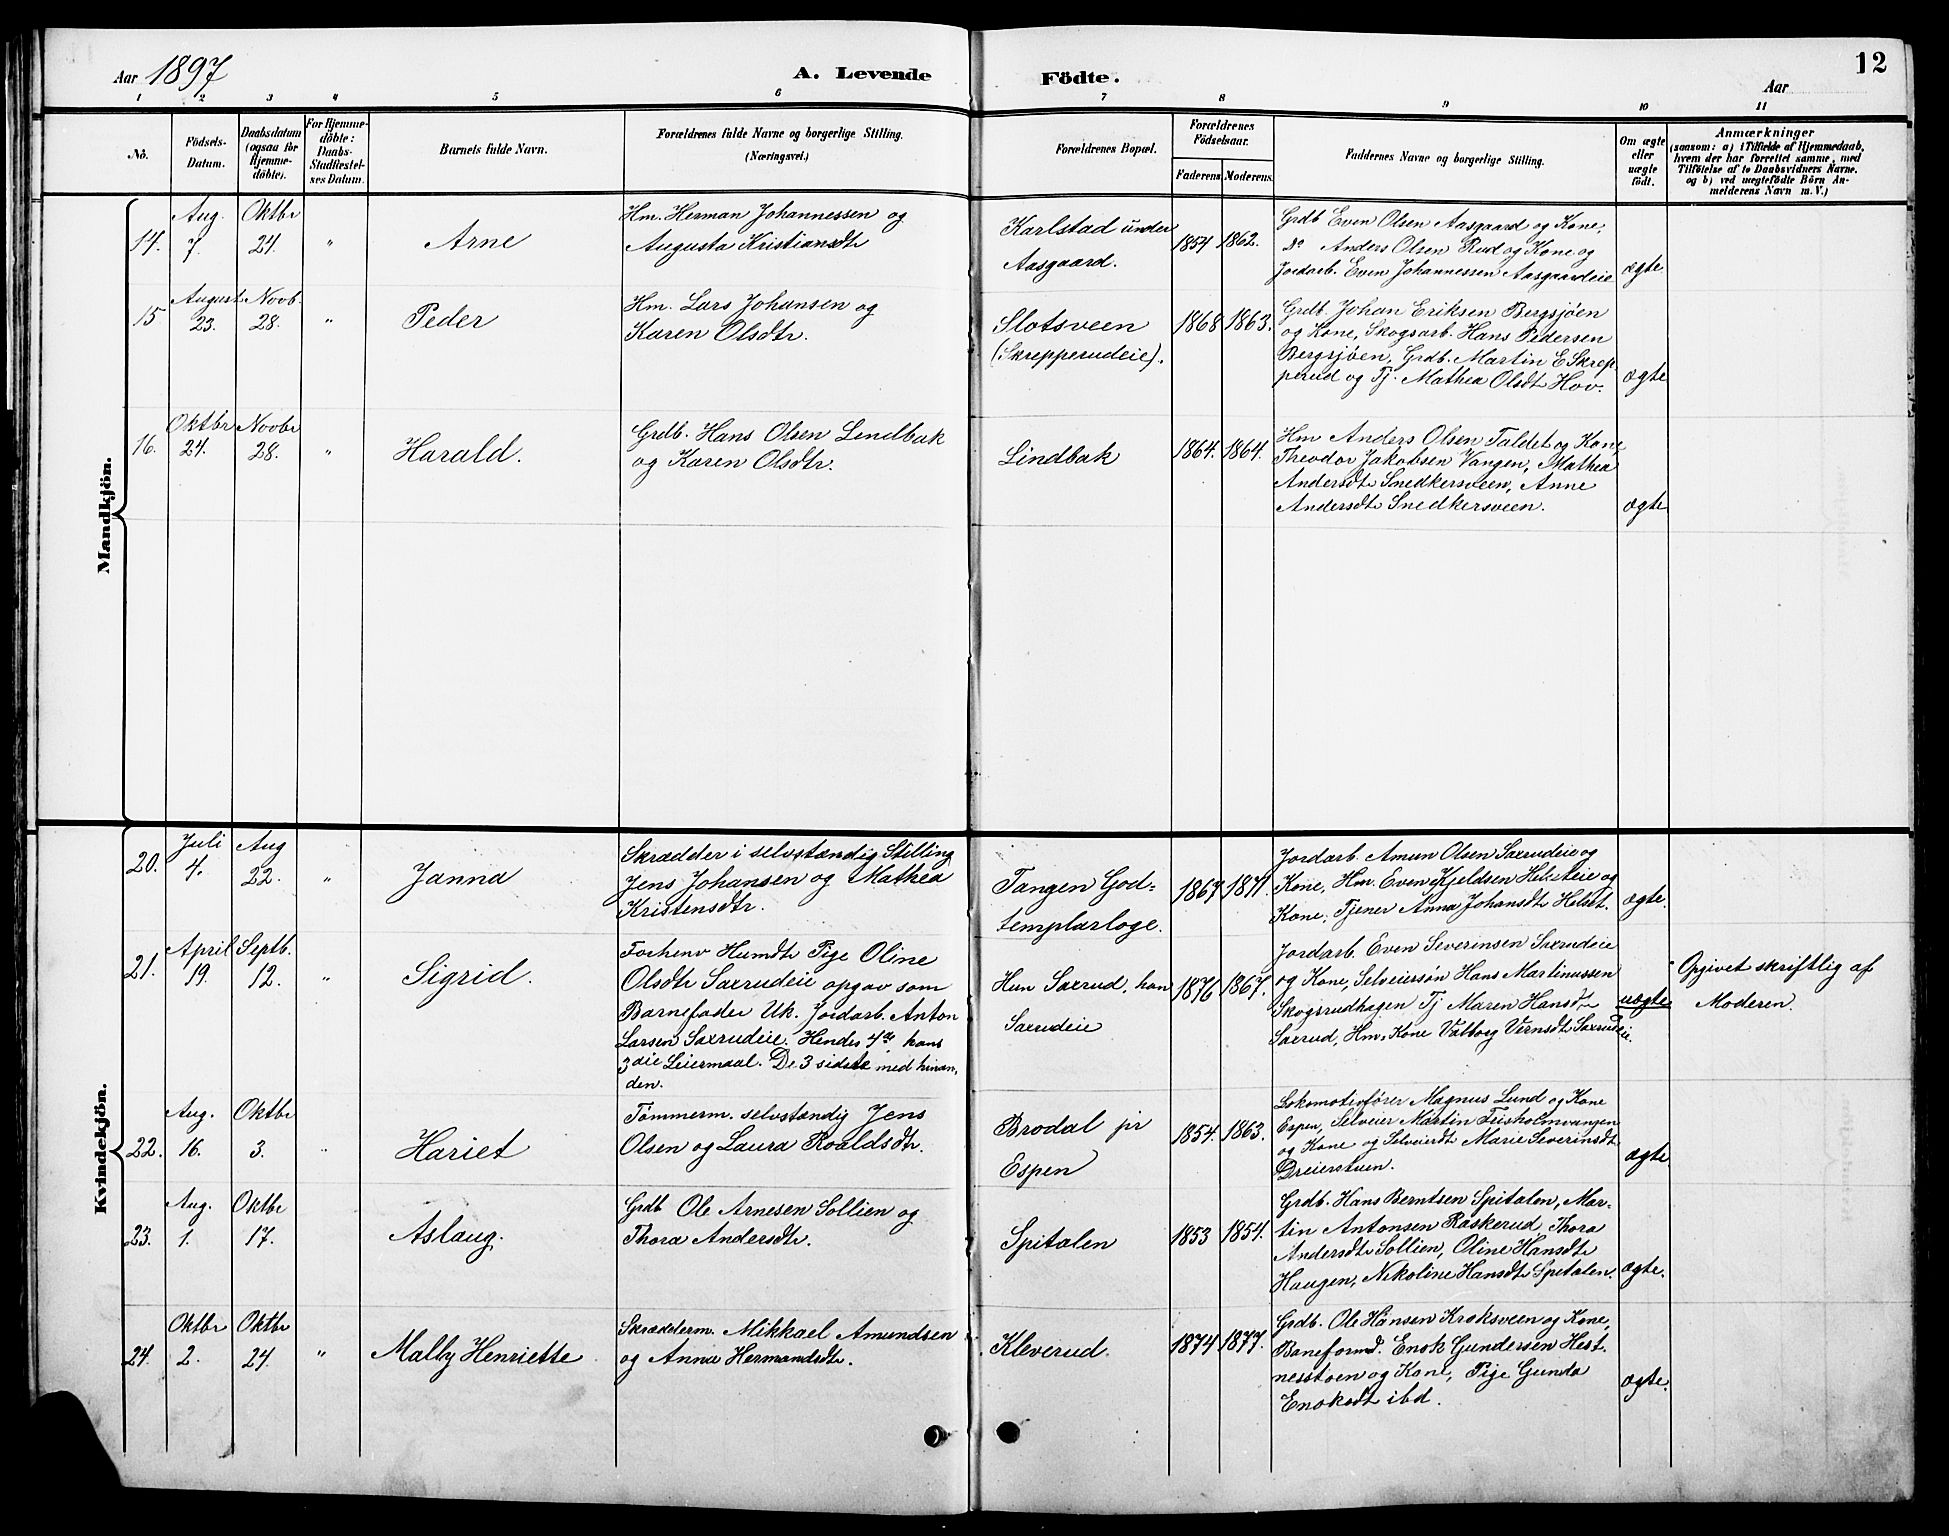 Aar 1897
A. Levende
Födte.
Aar
12
1 2 3 4 5 6 7 8 9 10 11
No.
Födsels-
Datum.
Daabsdatum
(ogsaa for
Hjemme-
döbte).
For Hjemme-
döbte:
Daabs-
Stadfæstel-
ses Datum.
Barnets fulde Navn.
Forældrenes fulde Navne og borgerlige Stilling.
(Næringsvei.)
Forældrenes Bopæl.
Forældrenes
Födselsaar.
Faderens. Moderens.
Faddernes Navne og borgerlige Stilling.
Om ægte
eller
uægte
födt.
Anmærkninger
(saasom: a) i Tilfælde af Hjemmedaab,
hvem der har forrettet samme, med
Tilföielse af to Daabsvidners Navne.
og b) ved uægtefödte Börn An-
melderens Navn m. V.)
Mandkjön.
14.
Aug.
7.
Oktbr
24.
"
Arne
Hm. Herman Johannessen og
Augusta Kristiansdtr
Karlstad under
Aasgaard.
1854 1862.
Grdb Even Olsen Aasgaard og Kone,
Do Anders Olsen Rud og Kone og
Jordarb. Even Johannessen Aasgaardeie
ægte.
15
August
23.
Novb.
28.
"
Peder
Hm. Lars Johansen og
Karen Olsdtr.
Slotsveen
(Skrepperudeie).
1868 1863.
Grdb. Johan Eriksen Bergsjøen
og Kone, Skogsarb. Hans Pedersen
Bergsjøen, Grdb. Martin E Skrep-
perud og Tj. Mathea Olsdt Hov.
ægte
16.
Oktbr
24.
Novbr
28.
"
Harald.
Grdb. Hans Olsen Lindbak
og Karen Olsdtr.
Lindbak
1864. 1864.
Hm Anders Olsen Taldet og Kone,
Theodor Jakobsen Vangen, Mathea
Andersdtr Snedkersveen, Anne
Andersdtr Snedkersveen.
ægte
Kvindekjön.
20.
Juli
4.
Aug
22.
"
Janna
Skrædder i selvstændig Stilling
Jens Johansen og Mathea
Kristensdtr.
Tangen God-
templarloge.
1867 1871.
Jordarb. Amun Olsen Saxrudeie og
Kone, Hm. Even Kjeldsen Helseteie og
Kone, Tjener Anna Johansdtr Helset.
ægte.
21.
April
19.
Septb.
12.
"
Sigrid.
Forhenv Husmdtr Pige Oline
Olsdtr Saxrudeie opgav som
Barnefader Uk. Jordarb. Anton
Larsen Saxrudeie. Hendes 4de hans
3die Leiermaal. De 3 sidste med hinan-
den.
Hun Saxrud, han
Saxrudeie
1876 1867.
Jordarb. Even Severinsen Saxrudeie
og Kone, Selveiersøn Hans Martinussen
Skogsrudhagen Tj Maren Hansdtr
Saxrud, Hm. Kone Valborg Vernsdtr Saxrudeie.
uægte
Opgivet skriftlig af
Moderen.
22.
Aug.
16.
Oktbr
3.
"
Hariet
Tømmerm. selvstændig Jens
Olsen og Laura Roaldsdtr.
Brodal pr
Espen
1854. 1863.
Lokomotivfører Magnus Lund og Kone
Espen, Selveier Martin
og Kone og Selveierdt Marie Severinsdt
Dreierstuen.
ægte
23.
Aug.
1.
Oktbr
17.
Aslaug.
Grdb Ole Arnesen Sollien og
Thora Andersdtr.
Spitalen
1853 1854.
Grdb. Hans Berntsen Spitalen, Mar-
tin Antonsen Raskerud, Thora
Andersdtr Sollien, Oline Hansdtr
Haugen, Nikoline Hansdtr Spitalen.
ægte.
24.
Oktbr
2.
Oktbr
24.
"
Mally Henriette
Skrædderm. Mikkael Amundsen
og Anna Hermandsdtr.
Kleverud.
1874 1877.
Grdb. Ole Hansen Kroksveen og Kone,
Baneformd. Enok Gundersen Hest-
nesstoen og Kone, Pige Gunda
Enoksdt ibd.
ægte.